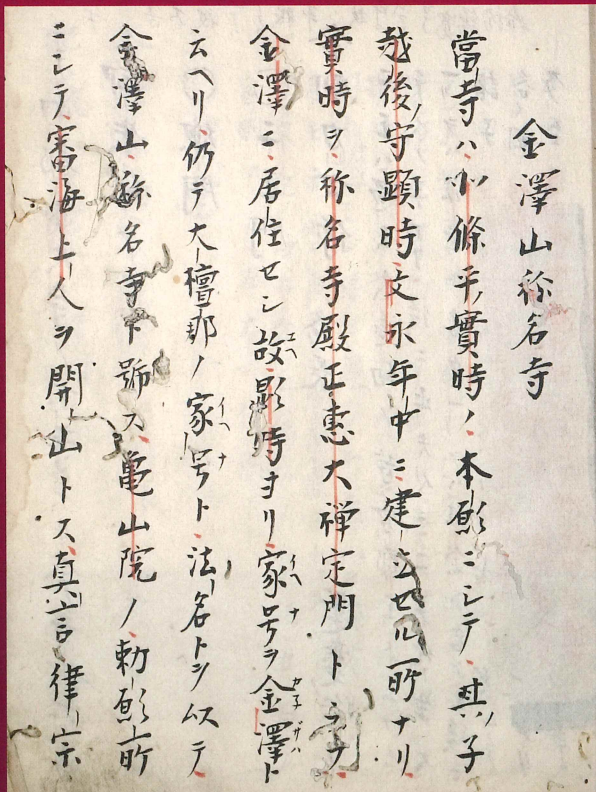 金澤山称名寺
當寺ハ北條平實時ノ本願ニシテ其ノ子
越後ノ守顕時文永年中ニ建立セル所ナリ
實時ヲ称名寺殿正惠大禅定門ト云テ
金澤ニ居住セシ故ヱヘ顕時ヨリ家号イヘナヲ金澤カネザハト
云ヘリ仍テ大檀那ノ家号イヘナト法名トヲ以テ
金澤山称名寺ト號ス亀山院ノ勅願所
ニシテ審海上人ヲ開山トス真言律宗